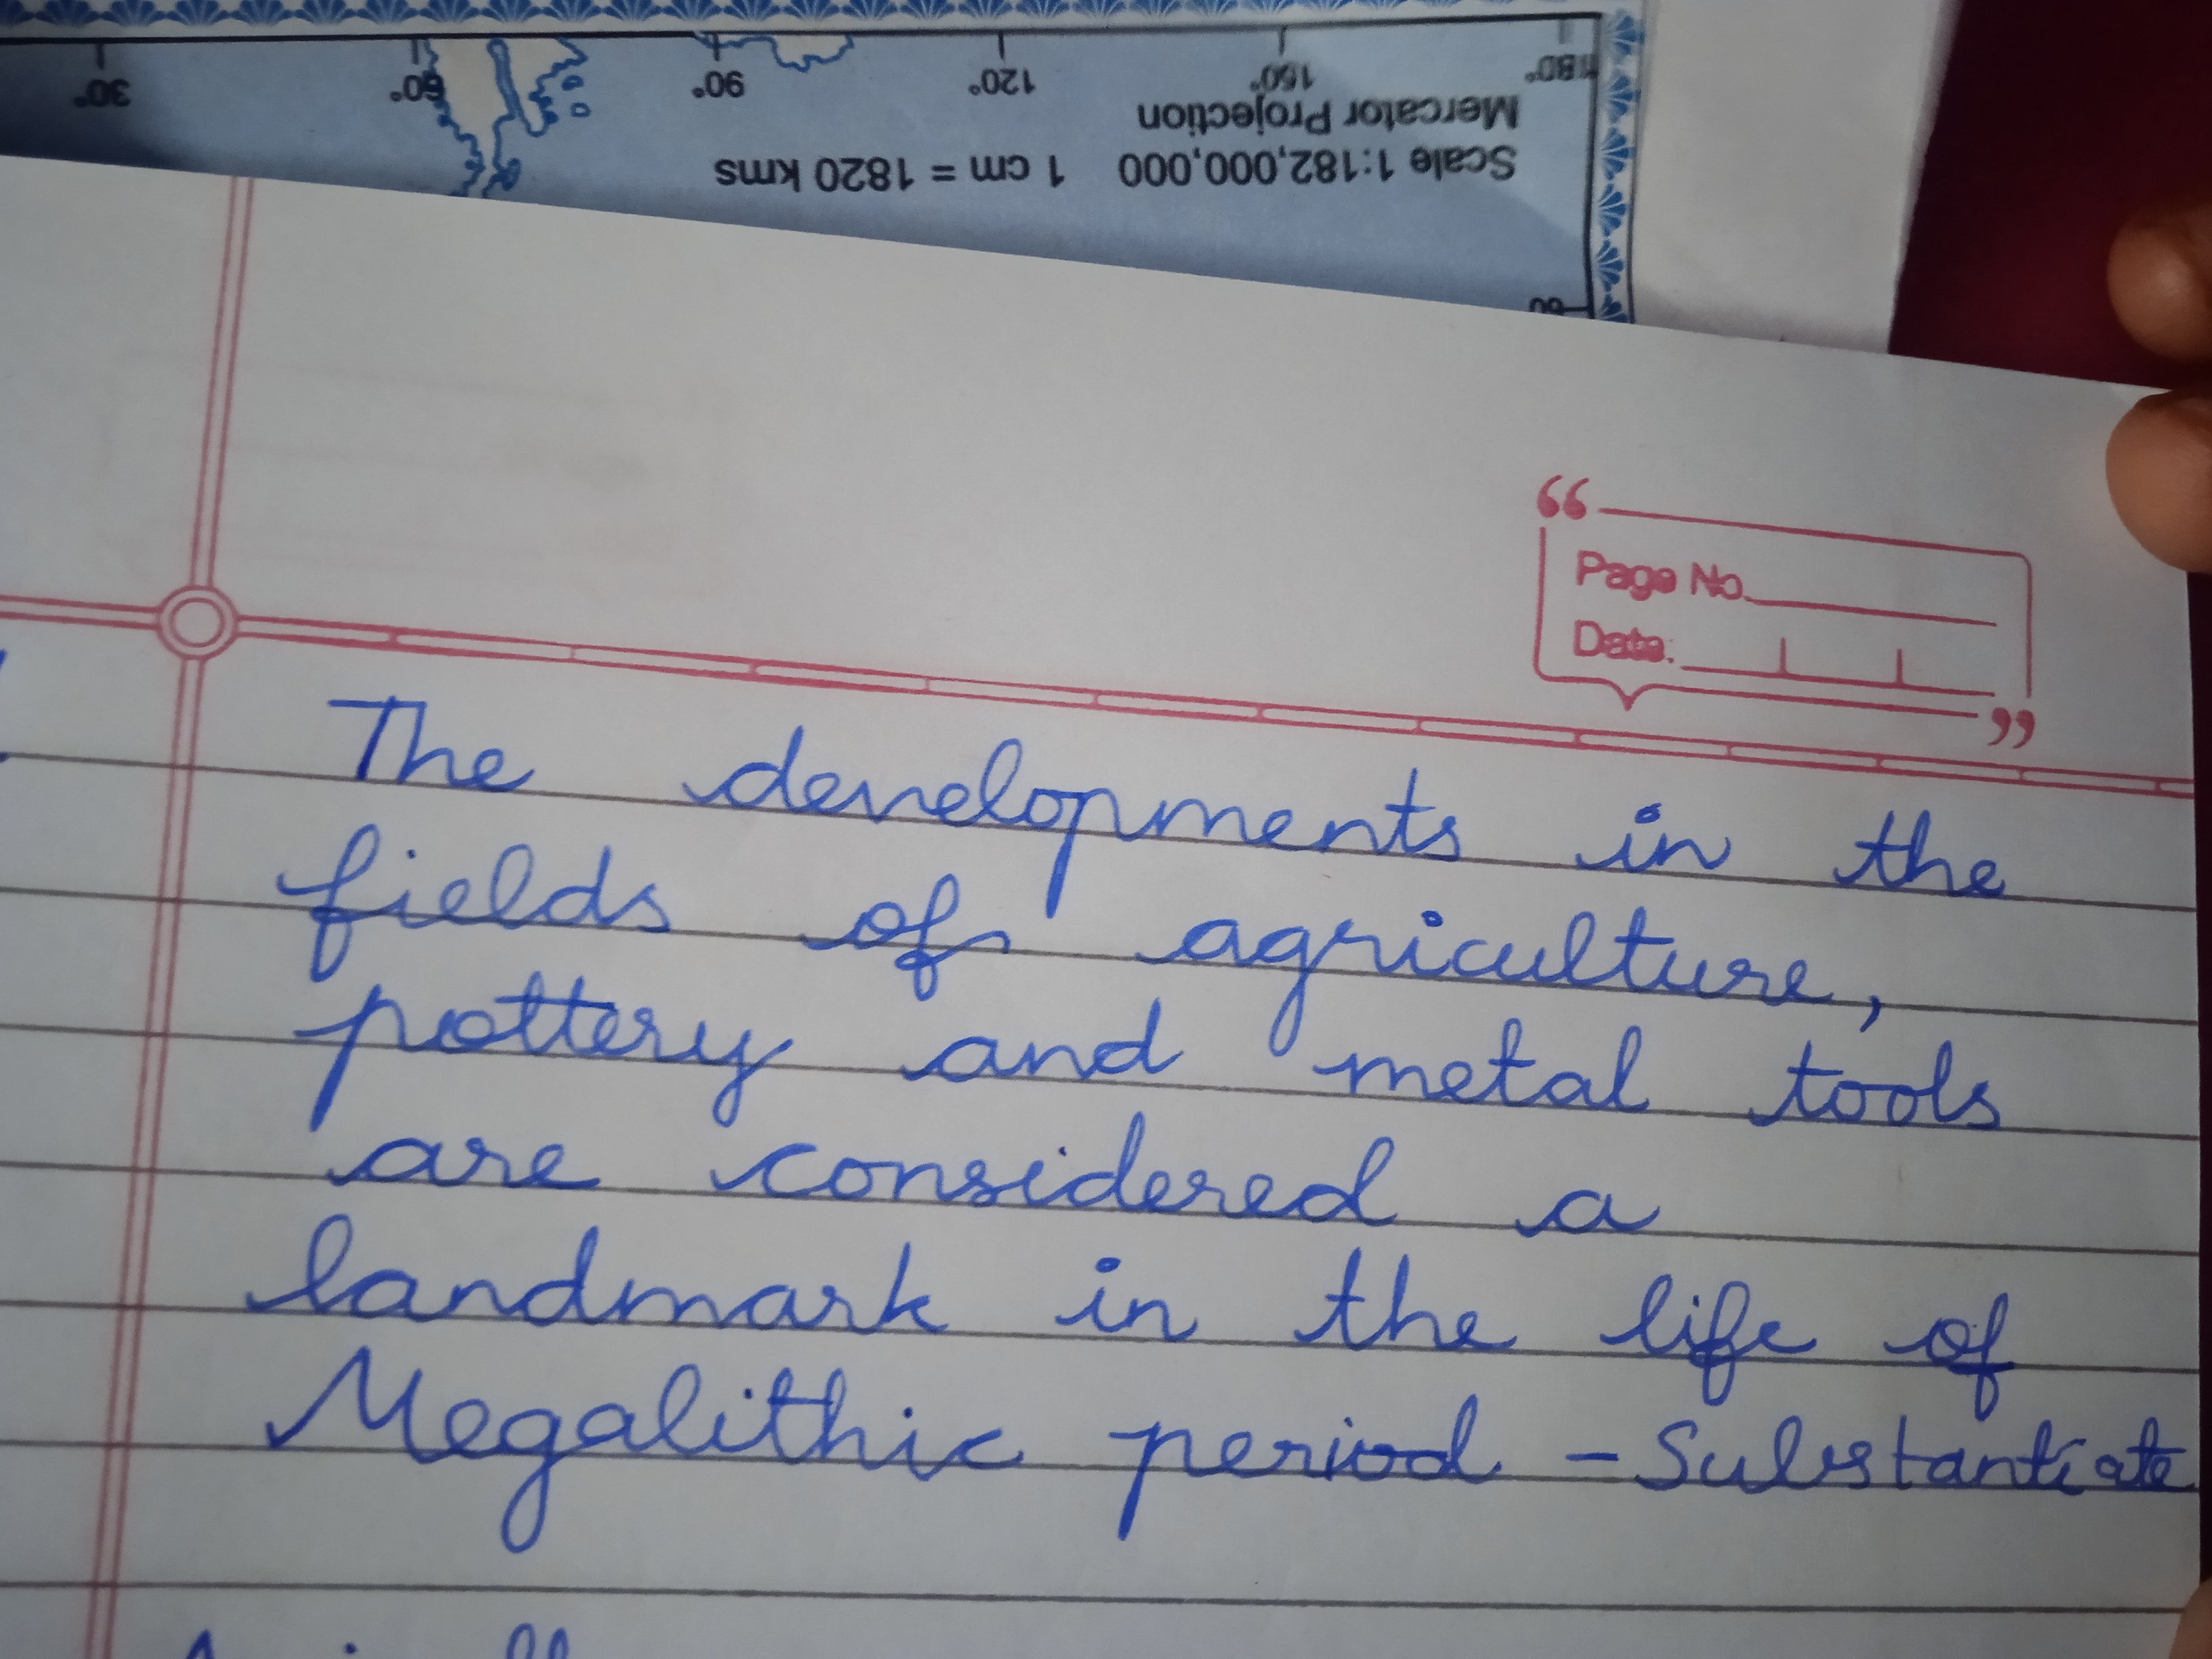 30° 60° 90° 120° 150° 180°
Mercator Projection
Scale 1:182,000,000 1 cm = 1820 kms
60
Page No.
Date:
The developments in the
fields of agriculture,
pottery and metal tools
are considered a
landmark in the life of
Megalithic period - Substantiate